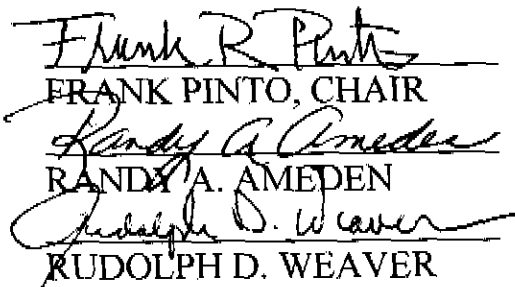 Frank R Pinto
FRANK PINTO, CHAIR
Randy A Ameden
RANDY A. AMEDEN
Rudolph D. Weaver
RUDOLPH D. WEAVER